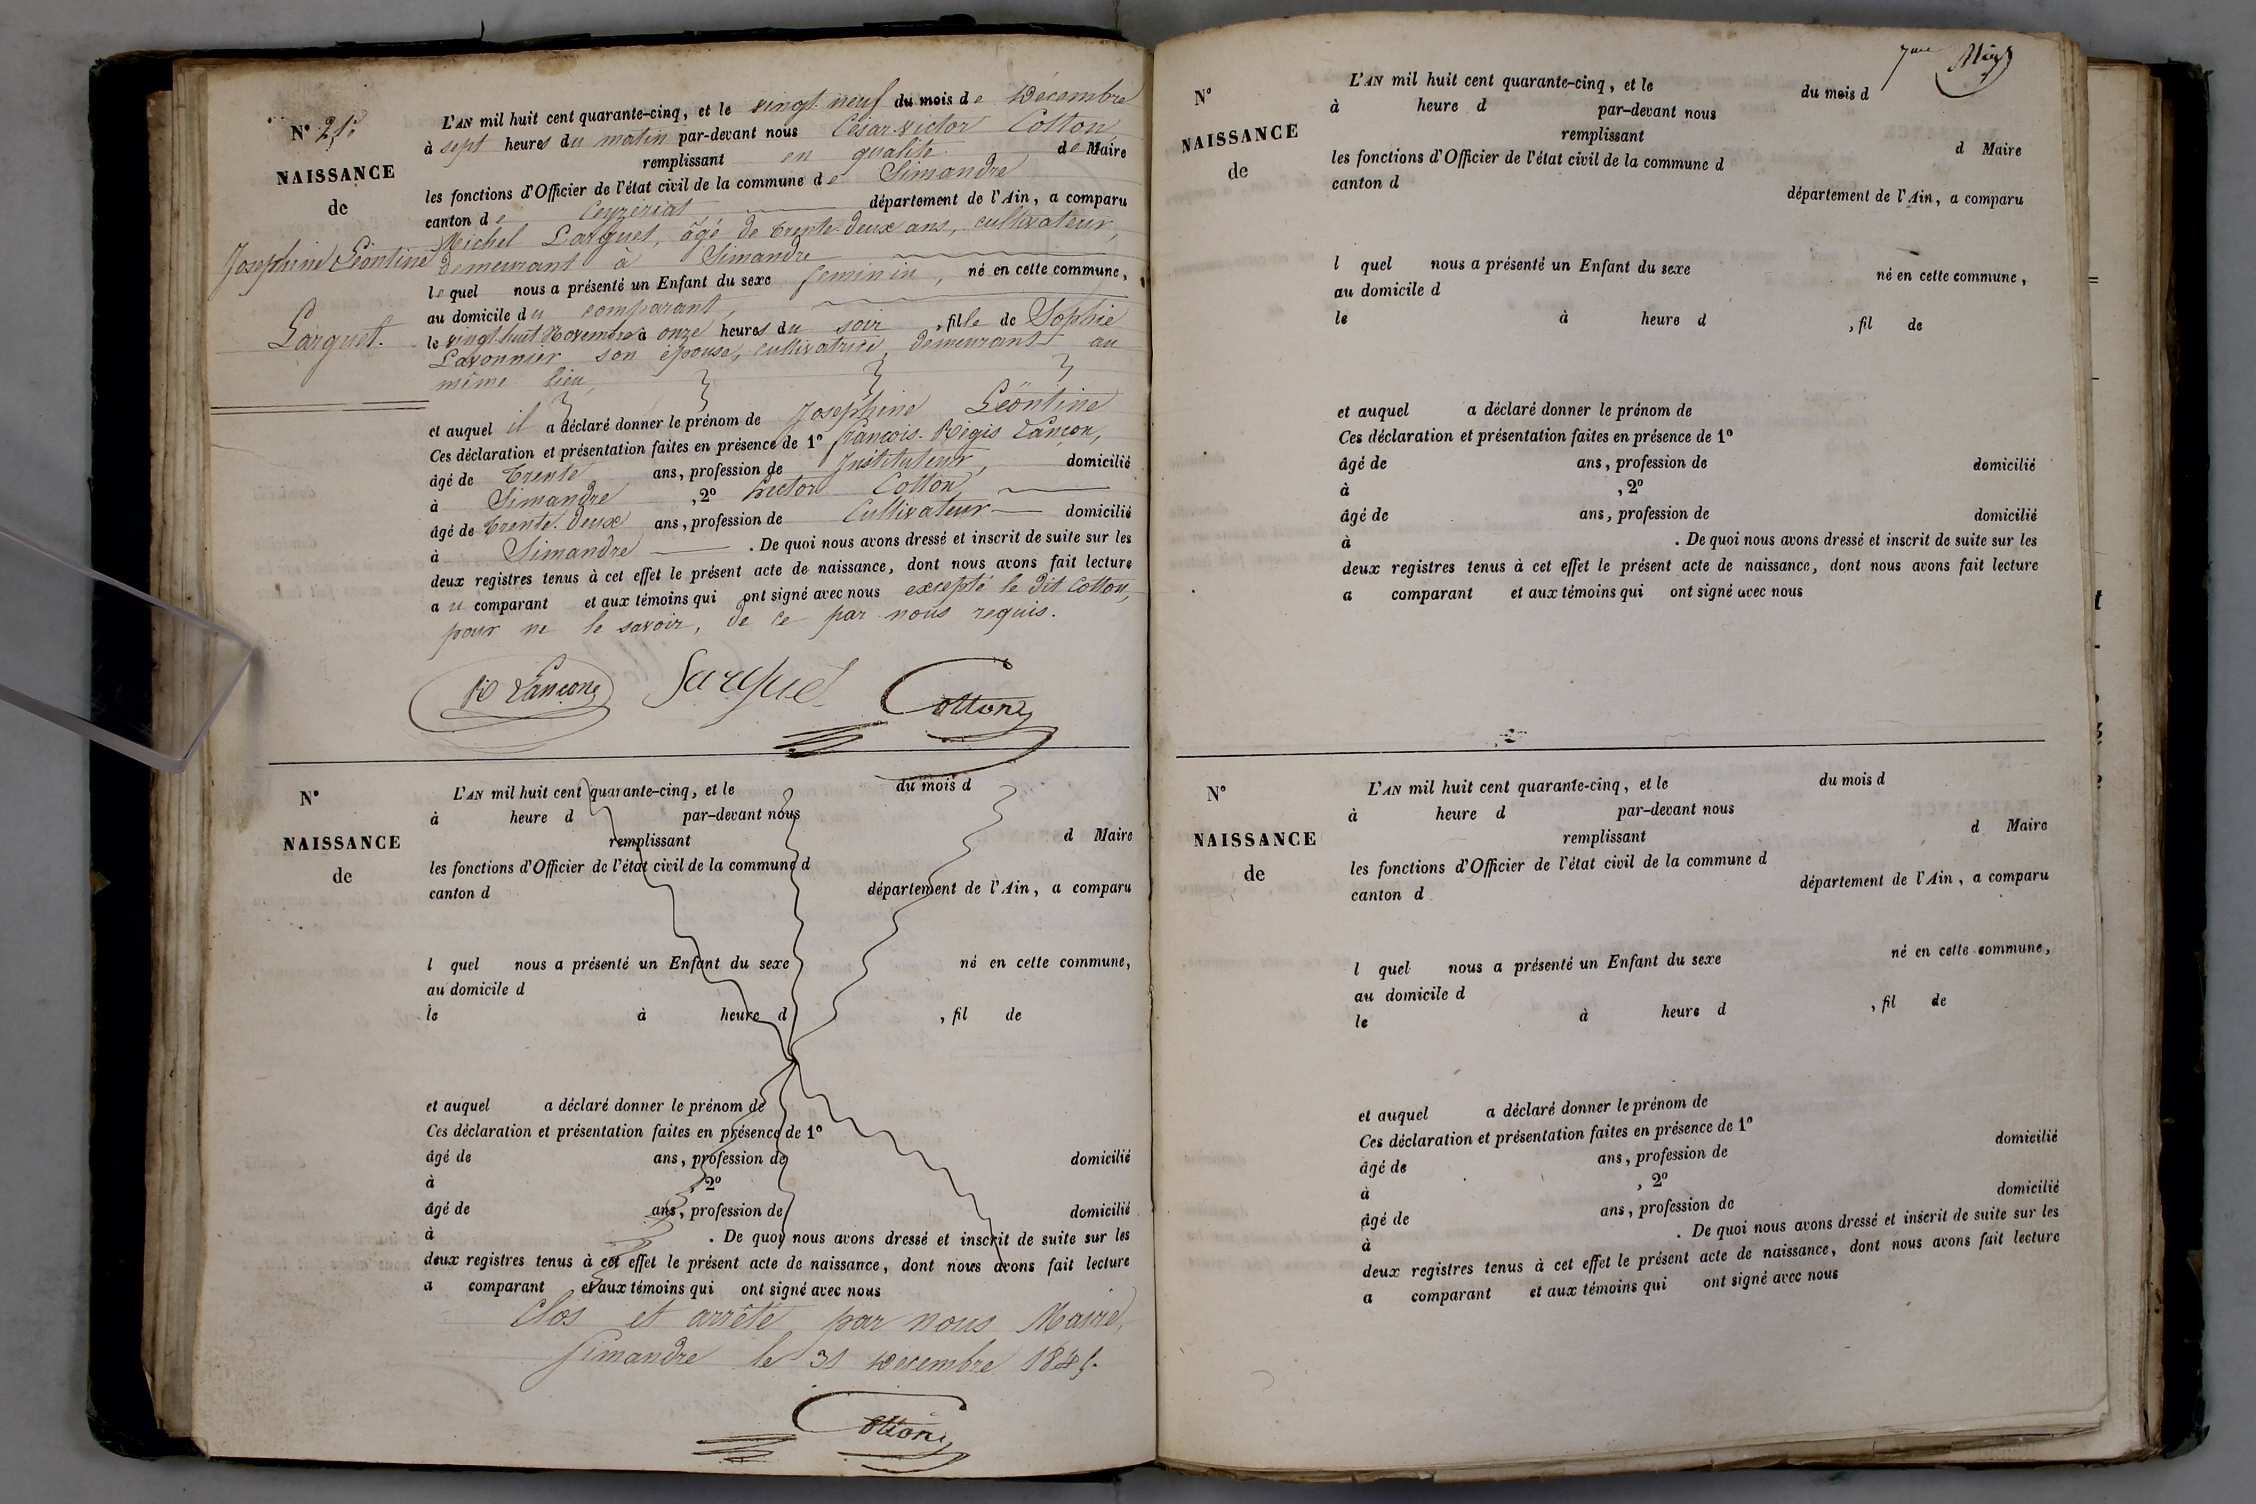 N° 25.
NAISSANCE
de
Josephine Léontine
Larguet.
L'AN mil huit cent quarante-cinq, et le vingt neuf du mois de Décembre
à sept heures du matin par-devant nous César-Victor Cotton,
remplissant en qualité de Maire
les fonctions d'Officier de l'état civil de la commune de Simandre
canton de Ceyzeriat département de l'Ain, a comparu
Michel Larguet, âgé de trente-deux ans, cultivateur,
demeurant à Simandre
lequel nous a présenté un Enfant du sexe feminin, né en cette commune,
au domicile du comparant,
le vingt huit Novembre à onze heures du soir, fille de Sophie
Lavonnier son épouse, cultivatrice, demeurant au
même lieu,
et auquel il a déclaré donner le prénom de Josephine Léontine
Ces déclaration et présentation faites en présence de 1° françois-Régis Lançon,
âgé de trente ans, profession de Instituteur, domicilié
à Simandre, 2° hector Cotton,
âgé de trente-deux ans, profession de Cultivateur domicilié
à Simandre . De quoi nous avons dressé et inscrit de suite sur les
deux registres tenus à cet effet le présent acte de naissance, dont nous avons fait lecture
au comparant et aux témoins qui ont signé avec nous excepté le dit Cotton,
pour ne le savoir, de ce par nous requis.
R Lançon Larguet Cotton
N°
NAISSANCE
de
L'AN mil huit cent quarante-cinq, et le du mois d
à heure d par-devant nous
remplissant d Maire
les fonctions d'Officier de l'état civil de la commune d
canton d département de l'Ain, a comparu
l quel nous a présenté un Enfant du sexe né en cette commune,
au domicile d
le à heure d , fil de
et auquel a déclaré donner le prénom de
Ces déclaration et présentation faites en présence de 1°
âgé de ans, profession de domicilié
à , 2°
âgé de ans, profession de domicilié
à . De quoi nous avons dressé et inscrit de suite sur les
deux registres tenus à cet effet le présent acte de naissance, dont nous avons fait lecture
a comparant et aux témoins qui ont signé avec nous
Clos et arrêté par nous Maire,
Simandre le 31 Décembre 1845.
Cotton
N°
NAISSANCE
de
L'AN mil huit cent quarante-cinq, et le du mois d
à heure d par-devant nous
remplissant d Maire
les fonctions d'Officier de l'état civil de la commune d
canton d département de l'Ain, a comparu
l quel nous a présenté un Enfant du sexe né en cette commune,
au domicile d
le à heure d , fil de
et auquel a déclaré donner le prénom de
Ces déclaration et présentation faites en présence de 1°
âgé de ans, profession de domicilié
à , 2°
âgé de ans, profession de domicilié
à . De quoi nous avons dressé et inscrit de suite sur les
deux registres tenus à cet effet le présent acte de naissance, dont nous avons fait lecture
a comparant et aux témoins qui ont signé avec nous
N°
NAISSANCE
de
L'AN mil huit cent quarante-cinq, et le du mois d
à heure d par-devant nous
remplissant d Maire
les fonctions d'Officier de l'état civil de la commune d
canton d département de l'Ain, a comparu
l quel nous a présenté un Enfant du sexe né en cette commune,
au domicile d
le à heure d , fil de
et auquel a déclaré donner le prénom de
Ces déclaration et présentation faites en présence de 1°
âgé de ans, profession de domicilié
à , 2°
âgé de ans, profession de domicilié
à . De quoi nous avons dressé et inscrit de suite sur les
deux registres tenus à cet effet le présent acte de naissance, dont nous avons fait lecture
a comparant et aux témoins qui ont signé avec nous